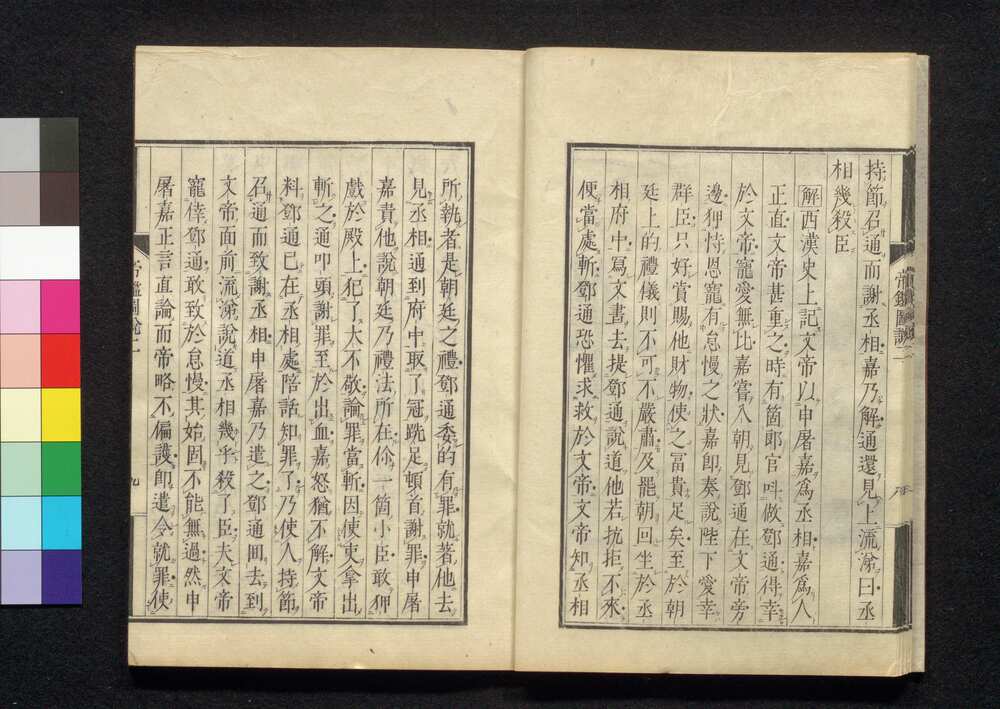 持節召通而謝丞相嘉乃解通還見上流涕曰丞
相幾殺臣
解西漢史上記文帝以申屠嘉為丞相嘉為人
正直文帝甚重之時有箇郎官叫做鄧通得幸
於文帝寵愛無比嘉嘗入朝見鄧通在文帝旁
邊狎恃恩寵有怠慢之狀嘉即奏說陛下愛幸
群臣只好賞賜他財物使之冨貴足矣至於朝
廷上的禮儀則不可不嚴肅及罷朝回坐於丞
相府中寫文書去提鄧通說道他若抗拒不來
便當處斬鄧通恐懼求救於文帝文帝知丞相
所執者是朝廷之禮鄧通委的有罪就著他去
見丞相通到府中取了冠跣足頓首謝罪申屠
嘉責他說朝廷乃禮法所在你一箇小臣敢狎
戲於殿上犯了大不敬論罪當斬因使吏拿出
斬之通叩頭謝罪至於出血嘉怒猶不解文帝
料鄧通已在丞相處陪話知罪了乃使人持節
召通而致謝丞相申屠嘉乃遣之鄧通囬去到
文帝面前流涕說道丞相幾乎殺了臣夫文帝
寵倖鄧通敢致於怠慢其始固不能無過然申
屠嘉正言直論而帝略不偏護即遣令就罪使
帝鑑圖說二
九